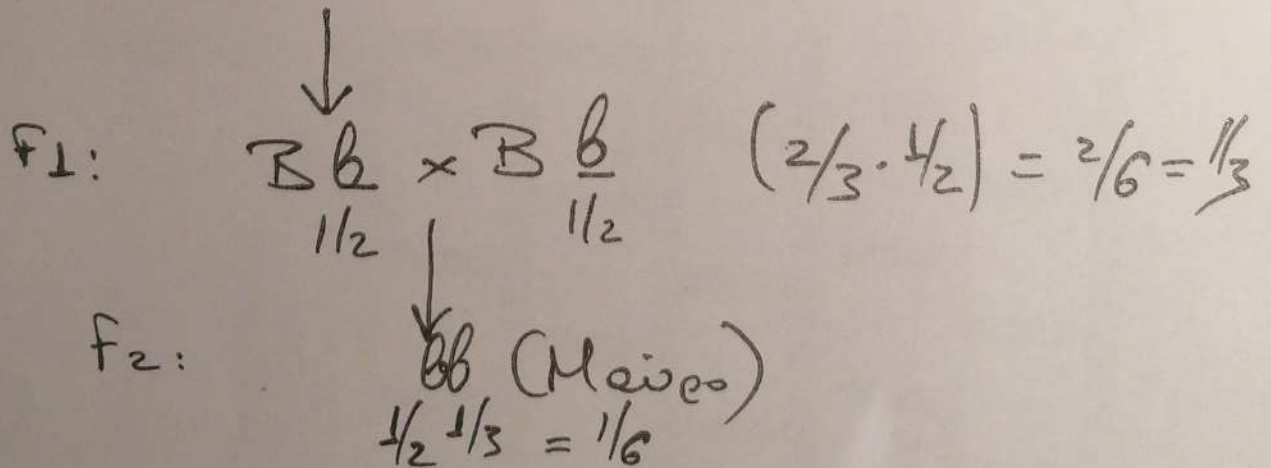 F1: Bb × Bb (2/3 · 1/2) = 2/6 = 1/3
1/2 1/2
F2: bb (Μαύρο)
1/2 1/3 = 1/6